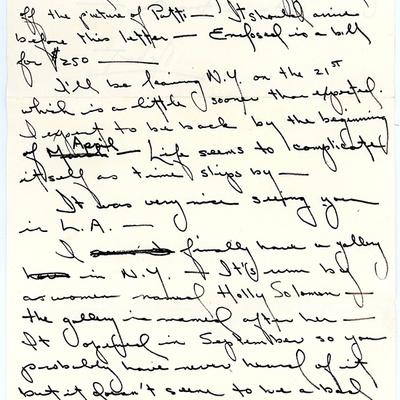 off the picture of Patti — It should arrive
before this letter — Enclosed is a bill
for $250 —
I'll be leaving N.Y. on the 21st
which is a little sooner than expected.
I expect to be back by the beginning
of April — Life seems to complicate
itself as time slips by —
It was very nice seeing you
in L.A. —
I finally have a gallery
in N.Y. — It's run by
a women named Holly Solomon —
the gallery is named after her —
It opened in September so you
probably have never heard of it
but it doesn't seem to be a bad